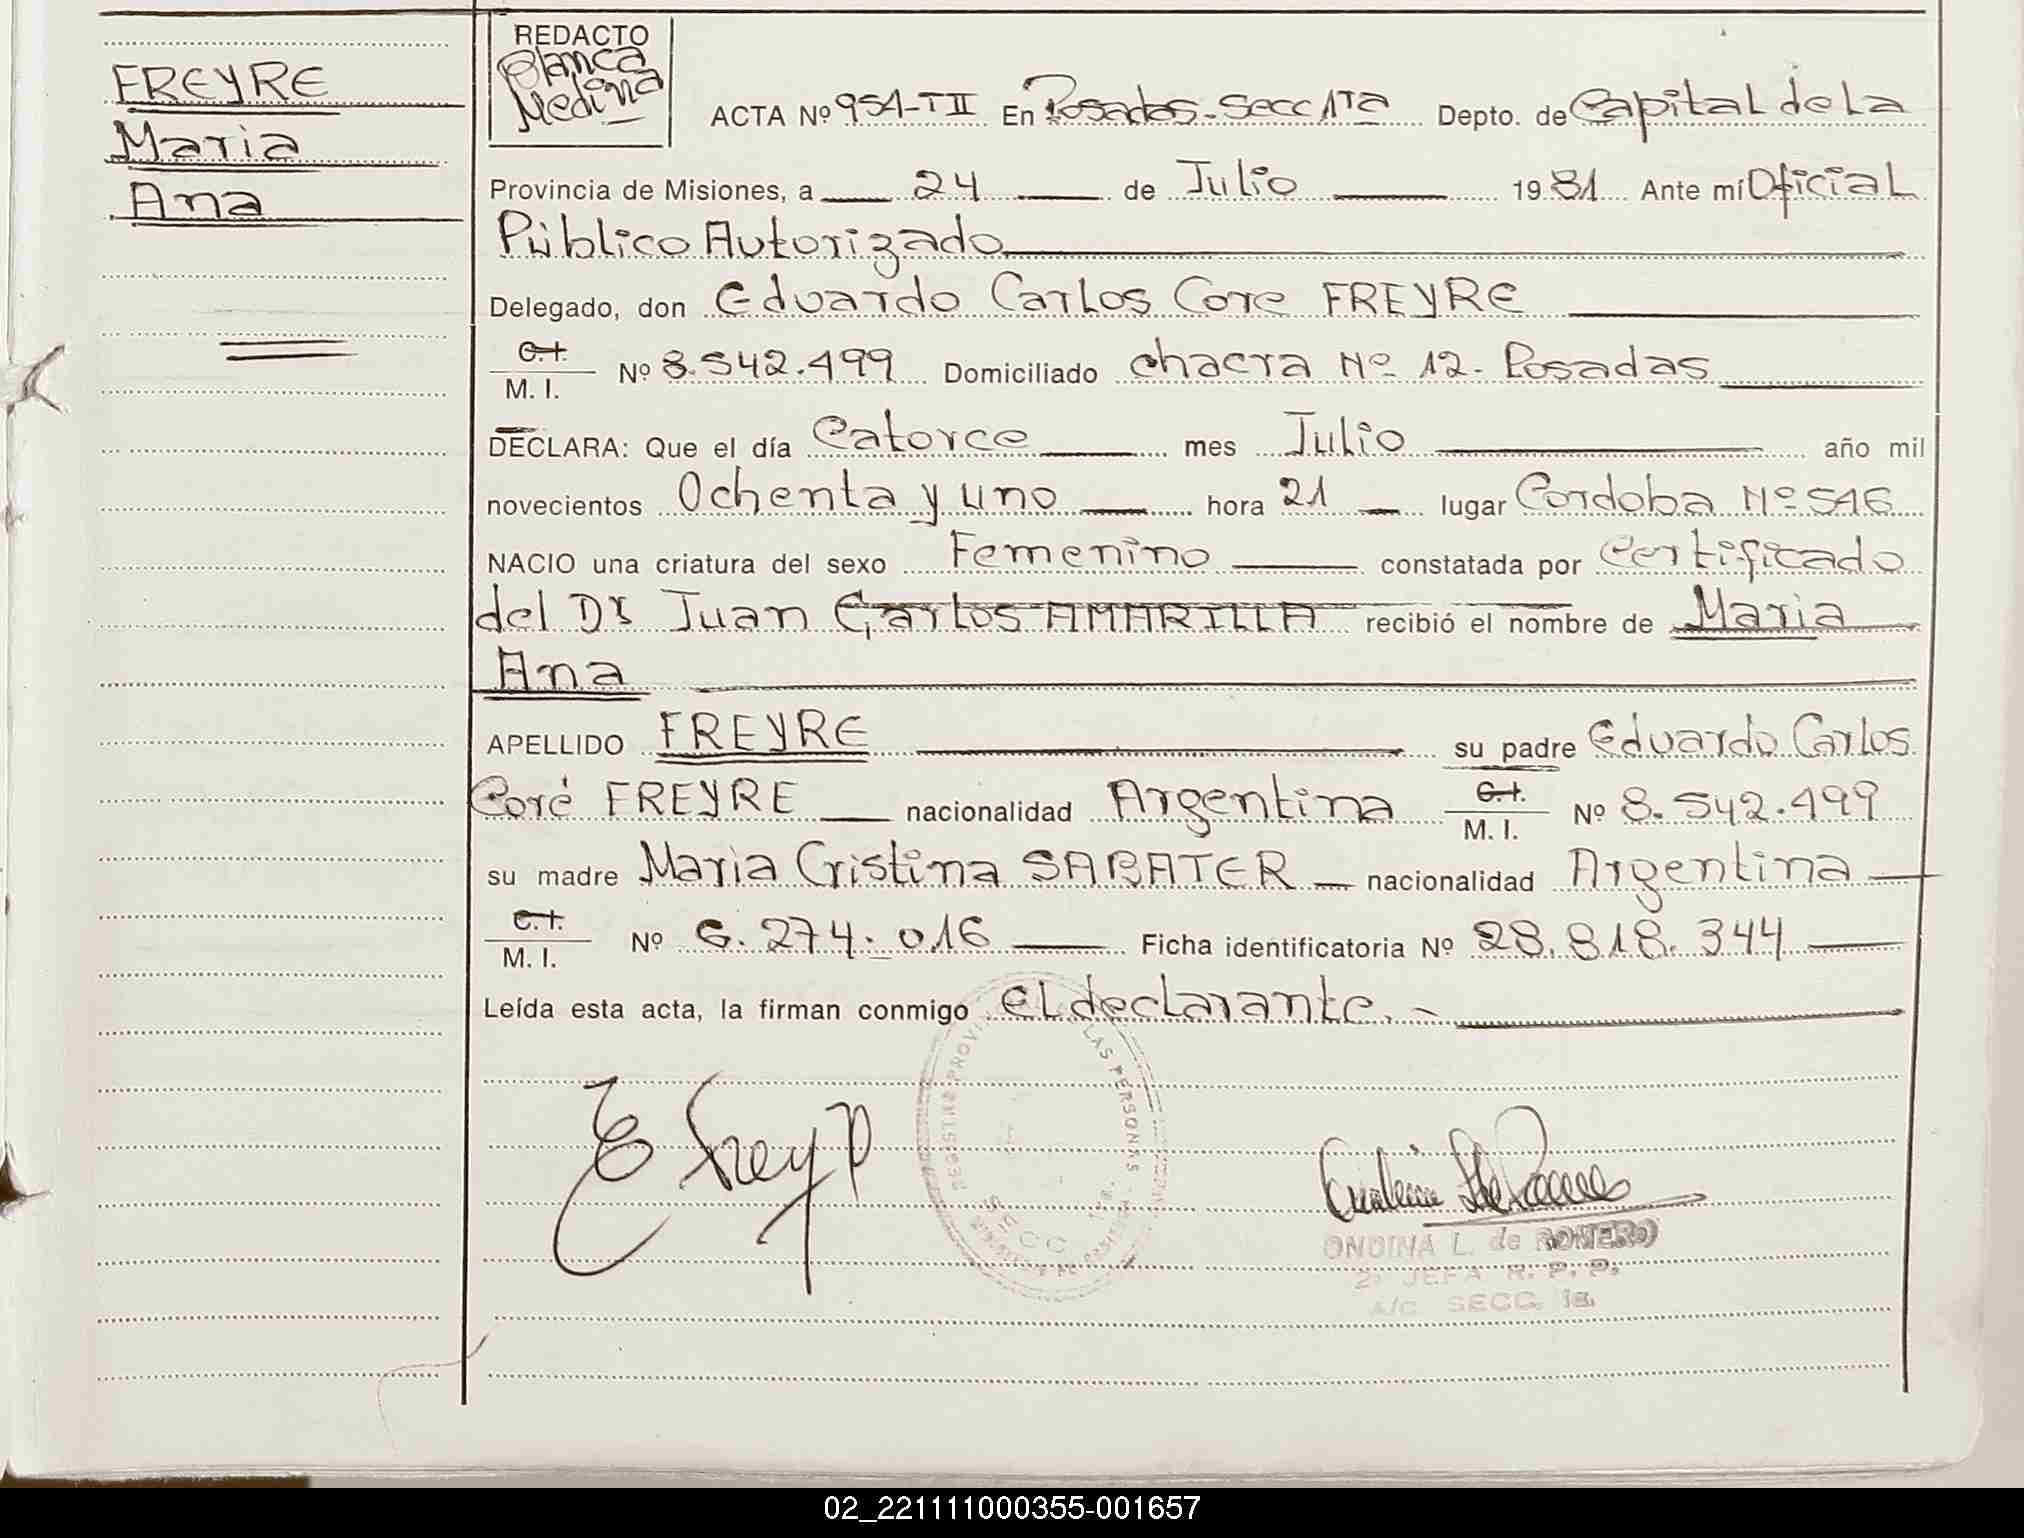 FREYRE
Maria
Ana
REDACTO
Blanca
Medina
ACTA Nº 951-TII En Posadas-Secc 1ra Depto. de Capital de La
Provincia de Misiones, a 24 de Julio 1981 Ante mí Oficial
Público Autorizado
Delegado, don Eduardo Carlos Core FREYRE
C.I.
M. I. Nº 8.542.499 Domiciliado chacra Nº 12. Posadas
DECLARA: Que el día Catorce mes Julio año mil
novecientos Ochenta y uno hora 21 lugar Cordoba Nº 546
NACIO una criatura del sexo Femenino constatada por Certificado
del Dr Juan Carlos AMARILLA recibió el nombre de Maria
Ana
APELLIDO FREYRE su padre Eduardo Carlos
Coré FREYRE nacionalidad Argentina C.I. M. I. Nº 8.542.499
su madre Maria Cristina SABATER nacionalidad Argentina
C.I.
M. I. Nº 6.274.016 Ficha identificatoria Nº 28.818.344
Leída esta acta, la firman conmigo el declarante.-
E Frey
REGISTRO PROVI LAS PERSONAS
SECC 1ra.
ONDINA L. de ROMERO
2ª JEFA R. P. P.
A/C SECC. 1a.
02_221111000355-001657